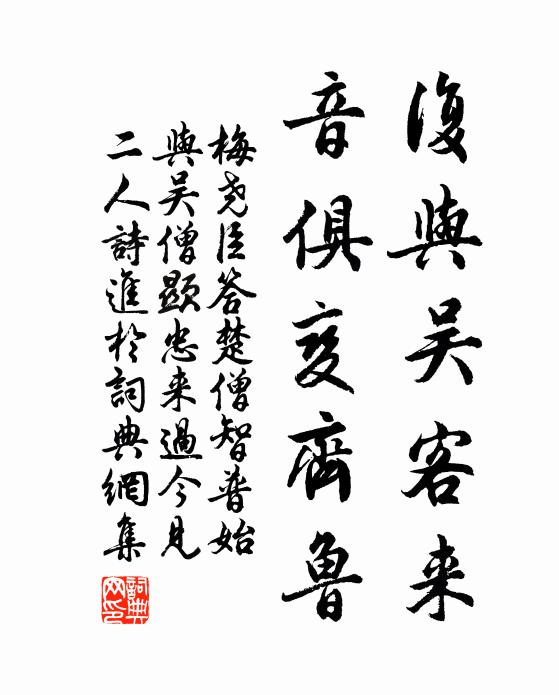 復與吴客来
音俱变齊魯
梅尧臣答楚僧智普始
與吴僧顯忠来過今見
二人詩進於詞典網集
詞典
网印